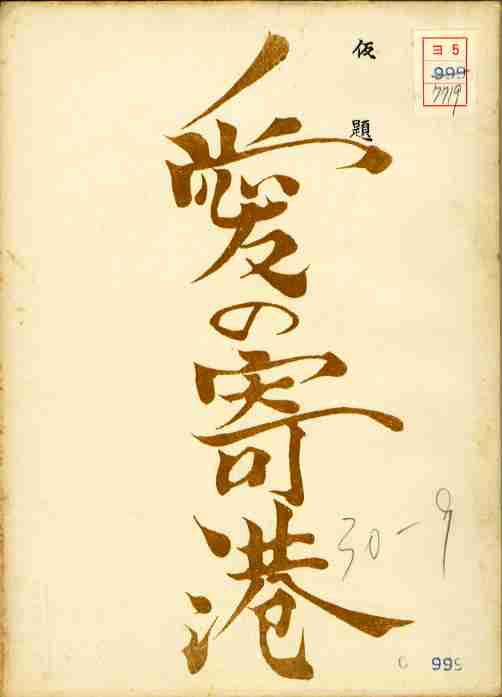 仮題
愛の寄港
ヨ5
999
7719
30-9
995